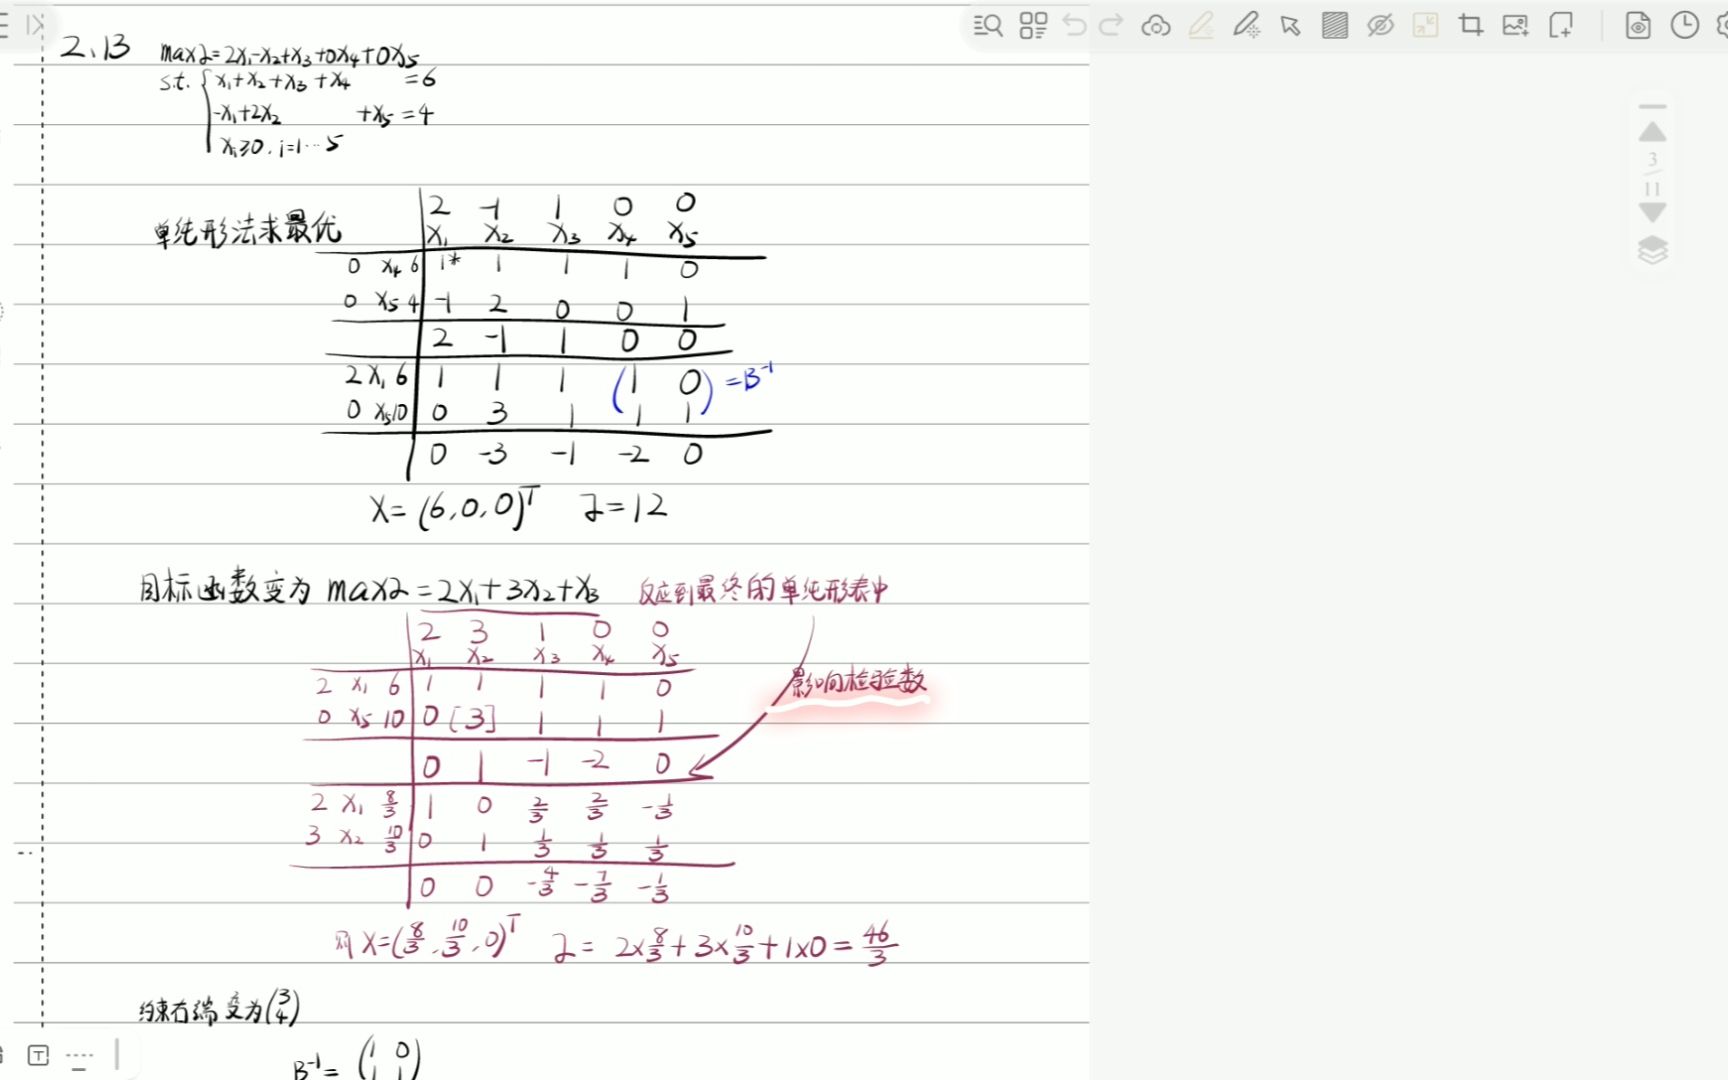 2.13 max z=2x₁-x₂+x₃+0x₄+0x₅
s.t. { x₁+x₂+x₃+x₄ =6
-x₁+2x₂ +x₅=4
xᵢ≥0, i=1…5
2 -1 1 0 0
单纯形法求最优 x₁ x₂ x₃ x₄ x₅
0 x₄ 6 1* 1 1 1 0
0 x₅ 4 -1 2 0 0 1
2 -1 1 0 0
2 x₁ 6 1 1 1 (1 0) =B⁻¹
0 x₅ 10 0 3 1 1 1
0 -3 -1 -2 0
X=(6,0,0)ᵀ z=12
目标函数变为 max z=2x₁+3x₂+x₃ 反应到最终的单纯形表中
2 3 1 0 0
x₁ x₂ x₃ x₄ x₅
影响检验数
2 x₁ 6 1 1 1 1 0
0 x₅ 10 0 [3] 1 1 1
0 1 -1 -2 0
2 x₁ 8/3 1 0 2/3 2/3 -1/3
3 x₂ 10/3 0 1 1/3 1/3 1/3
0 0 -4/3 -7/3 -1/3
则 X=(8/3,10/3,0)ᵀ z= 2×8/3+3×10/3+1×0=46/3
约束右端变为(3 4)
B⁻¹= (1 0
1 1)
3
11